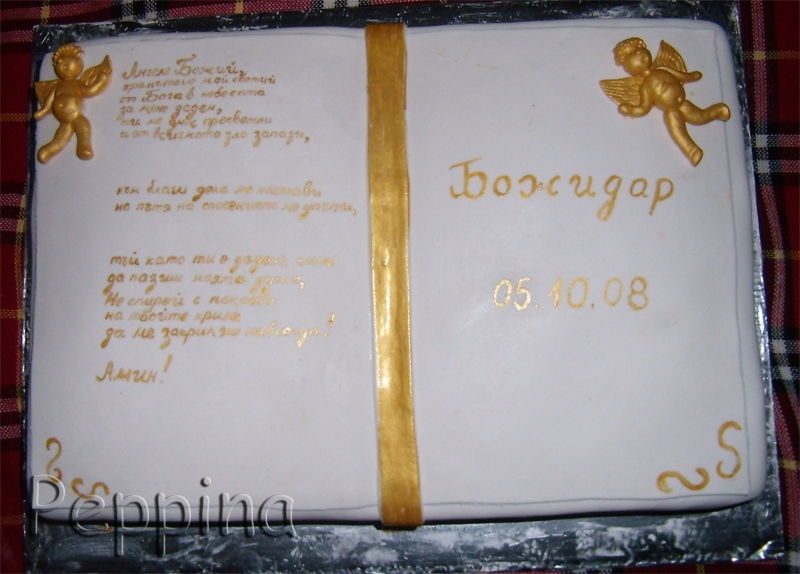 Ангеле Божий,
хранителю мой святий
от Бога в небесата
за мене даден,
ти ме днес просветли
и от всичкото зло запази,
към благи дела ме настави
на пътя на спасението ме упъти,
тъй като ти е дадена
да пазиш моята душа,
Не спирай с покрова
на твойте криле
да ме закриляш !
Амин!
Божидар
05.10.08
Peppina